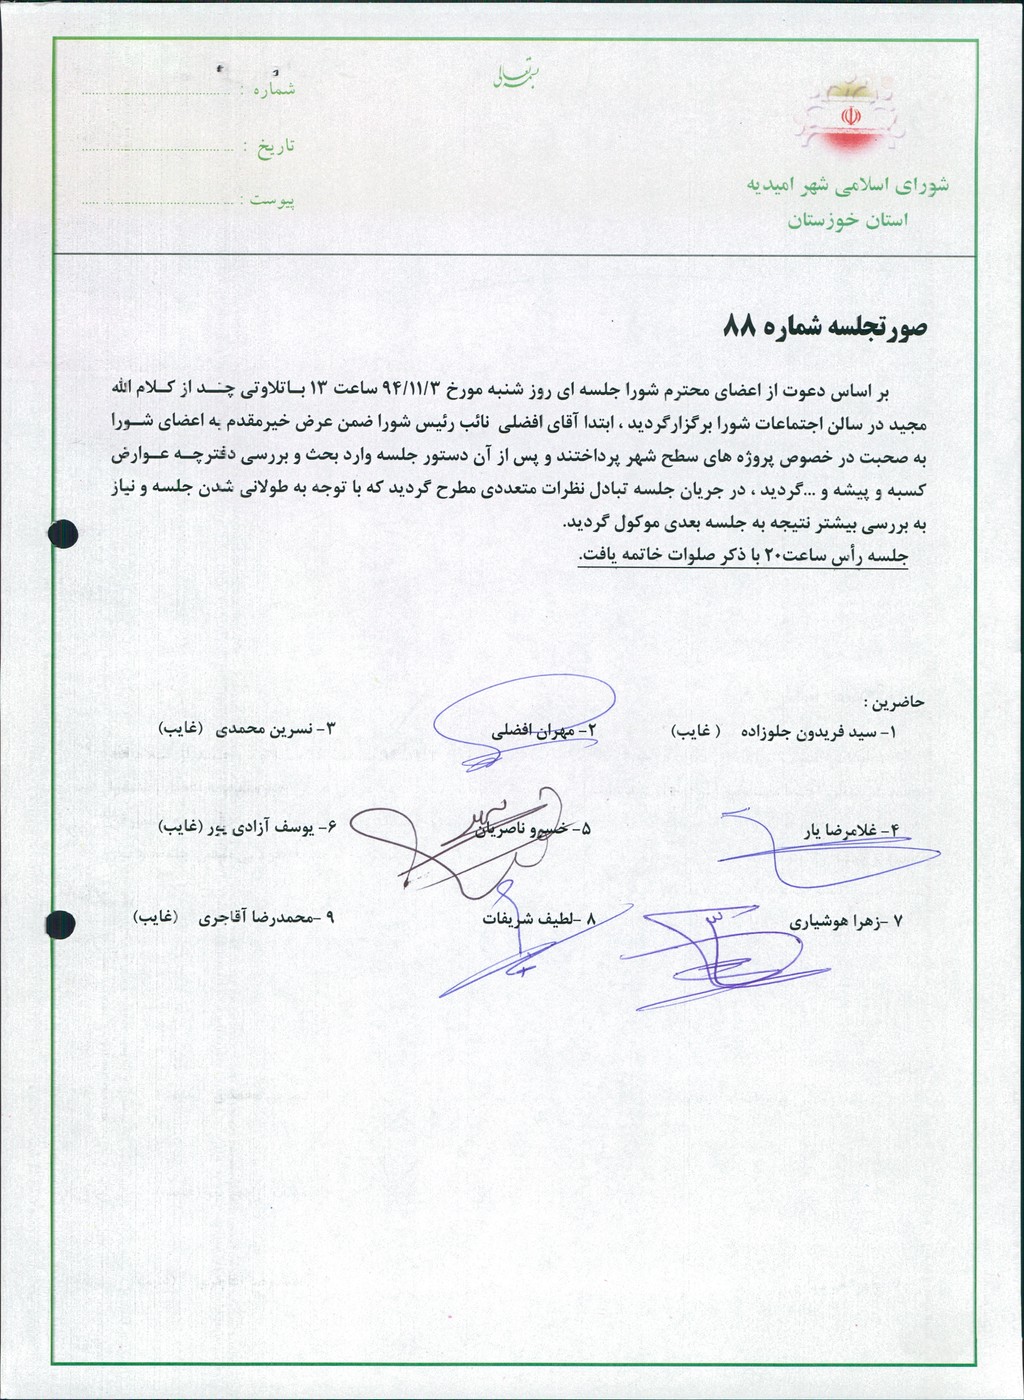 بسمه تعالی
شماره :
تاریخ :
پیوست :
شورای اسلامی شهر امیدیه
استان خوزستان
صورتجلسه شماره ۸۸
بر اساس دعوت از اعضای محترم شورا جلسه ای روز شنبه مورخ ۹۴/۱۱/۳ ساعت ۱۳ با تلاوتی چند از کلام الله
مجید در سالن اجتماعات شورا برگزارگردید ، ابتدا آقای افضلی نائب رئیس شورا ضمن عرض خیرمقدم به اعضای شورا
به صحبت در خصوص پروژه های سطح شهر پرداختند و پس از آن دستور جلسه وارد بحث و بررسی دفترچه عوارض
کسبه و پیشه و ...گردید ، در جریان جلسه تبادل نظرات متعددی مطرح گردید که با توجه به طولانی شدن جلسه و نیاز
به بررسی بیشتر نتیجه به جلسه بعدی موکول گردید.
جلسه رأس ساعت۲۰ با ذکر صلوات خاتمه یافت.
حاضرین :
۱- سید فریدون جلوزاده ( غایب) ۲- مهران افضلی ۳- نسرین محمدی (غایب)
۴- غلامرضا یار ۵- خسرو ناصریان ۶- یوسف آزادی پور (غایب)
۷ -زهرا هوشیاری ۸ -لطیف شریفات ۹ -محمدرضا آقاجری (غایب)